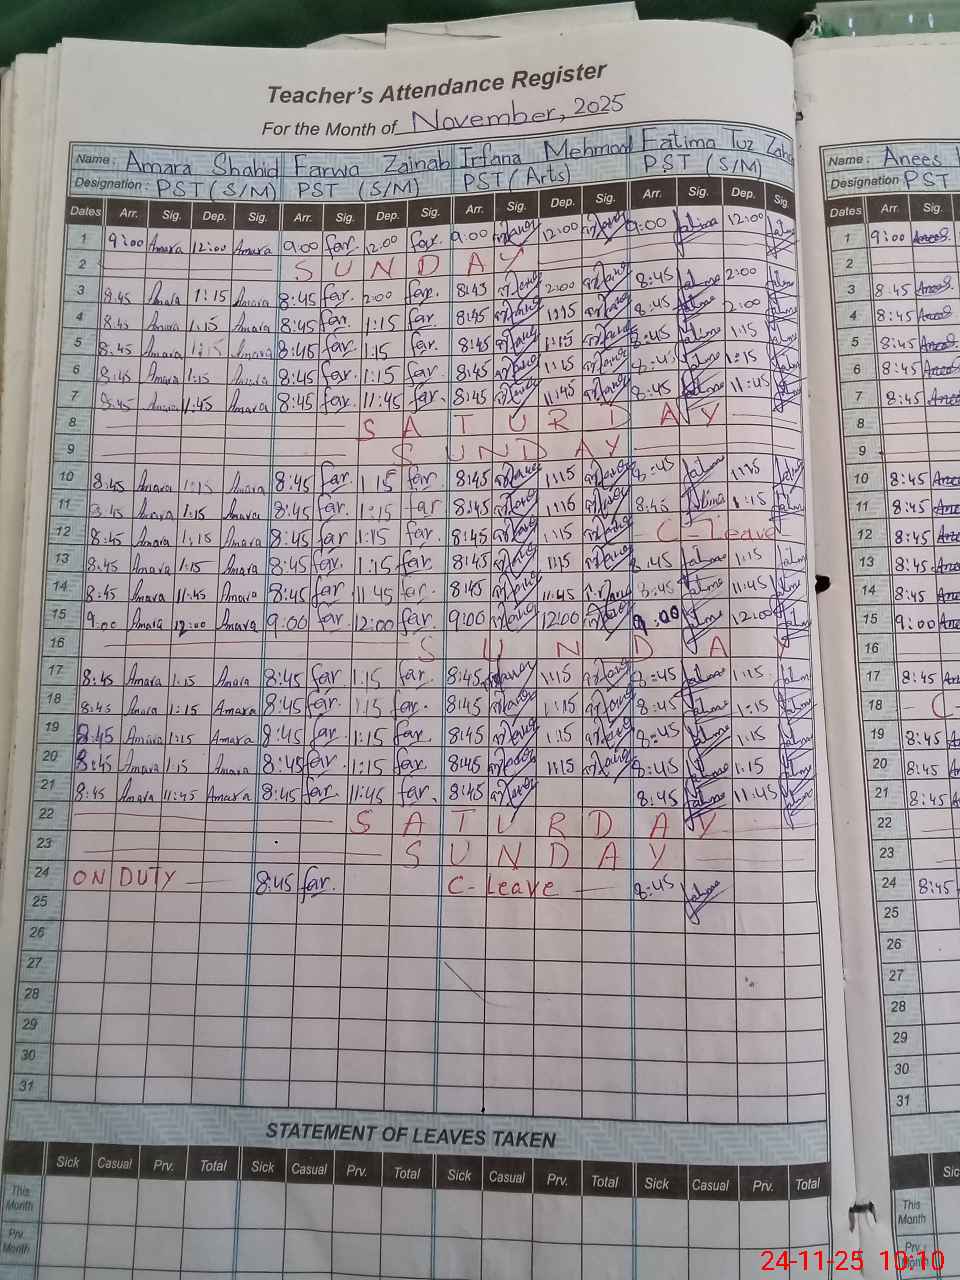 Teacher's Attendance Register
For the Month of November, 2025
Name : Amara Shahid Farwa Zainab Irfana Mehmood Fatima Tuz Zahr
Designation : PST (S/M) PST (S/M) PST (Arts) PST (S/M)
Dates Arr. Sig. Dep. Sig. Arr. Sig. Dep. Sig. Arr. Sig. Dep. Sig. Arr. Sig. Dep. Sig.
1 9:00 Amara 12:00 Amara 9:00 far. 12:00 far. 9:00 12:00 9:00 fatima 12:00
2 SUNDAY
3 8:45 Amara 1:15 Amara 8:45 far. 2:00 far. 8:45 2:00 8:45 2:00
4 8:45 Amara 1:15 Amara 8:45 far. 1:15 far. 8:45 1:15 8:45 2:00
5 8:45 Amara 1:15 Amara 8:45 far. 1:15 far. 8:45 1:15 8:45 1:15
6 8:45 Amara 1:15 Amara 8:45 far. 1:15 far. 8:45 1:15 8:45 1:15
7 8:45 Amara 11:45 Amara 8:45 far. 11:45 far. 8:45 11:45 8:45 11:45
8 SATURDAY
9 SUNDAY
10 8:45 Amara 1:15 Amara 8:45 far. 1:15 far. 8:45 1:15 8:45 1:15
11 8:45 Amara 1:15 Amara 8:45 far. 1:15 far 8:45 1:15 8:45 1:15
12 8:45 Amara 1:15 Amara 8:45 far 1:15 far. 8:45 1:15 C-leave
13 8:45 Amara 1:15 Amara 8:45 far. 1:15 far. 8:45 1:15 8:45 1:15
14 8:45 Amara 11:45 Amara 8:45 far 11:45 far. 8:45 11:45 8:45 11:45
15 9:00 Amara 12:00 Amara 9:00 far. 12:00 far. 9:00 12:00 9:00 12:00
16 SUNDAY
17 8:45 Amara 1:15 Amara 8:45 far 1:15 far. 8:45 1:15 8:45 1:15
18 8:45 Amara 1:15 Amara 8:45 far. 1:15 far. 8:45 1:15 8:45 1:15
19 8:45 Amara 1:15 Amara 8:45 far. 1:15 far. 8:45 1:15 8:45 1:15
20 8:45 Amara 1:15 Amara 8:45 far. 1:15 far. 8:45 1:15 8:45 1:15
21 8:45 Amara 11:45 Amara 8:45 far. 11:45 far. 8:45 8:45 11:45
22 SATURDAY
23 SUNDAY
24 ON DUTY 8:45 far. C-Leave 8:45
25
26
27
28
29
30
31
STATEMENT OF LEAVES TAKEN
Sick Casual Prv. Total Sick Casual Prv. Total Sick Casual Prv. Total Sick Casual Prv. Total
This Month
Prv. Month
Name : Anees
Designation PST
Dates Arr. Sig.
1 9:00 Anees
2
3 8:45 Anees
4 8:45 Anees
5 8:45 Anees
6 8:45 Anees
7 8:45
8
9
10 8:45
11 8:45
12 8:45
13 8:45
14 8:45
15 9:00
16
17 8:45
18 - C-
19 8:45
20 8:45
21 8:45
22
23
24 8:45
25
26
27
28
29
30
31
This Month
Prv. Month
24-11-25 10:10